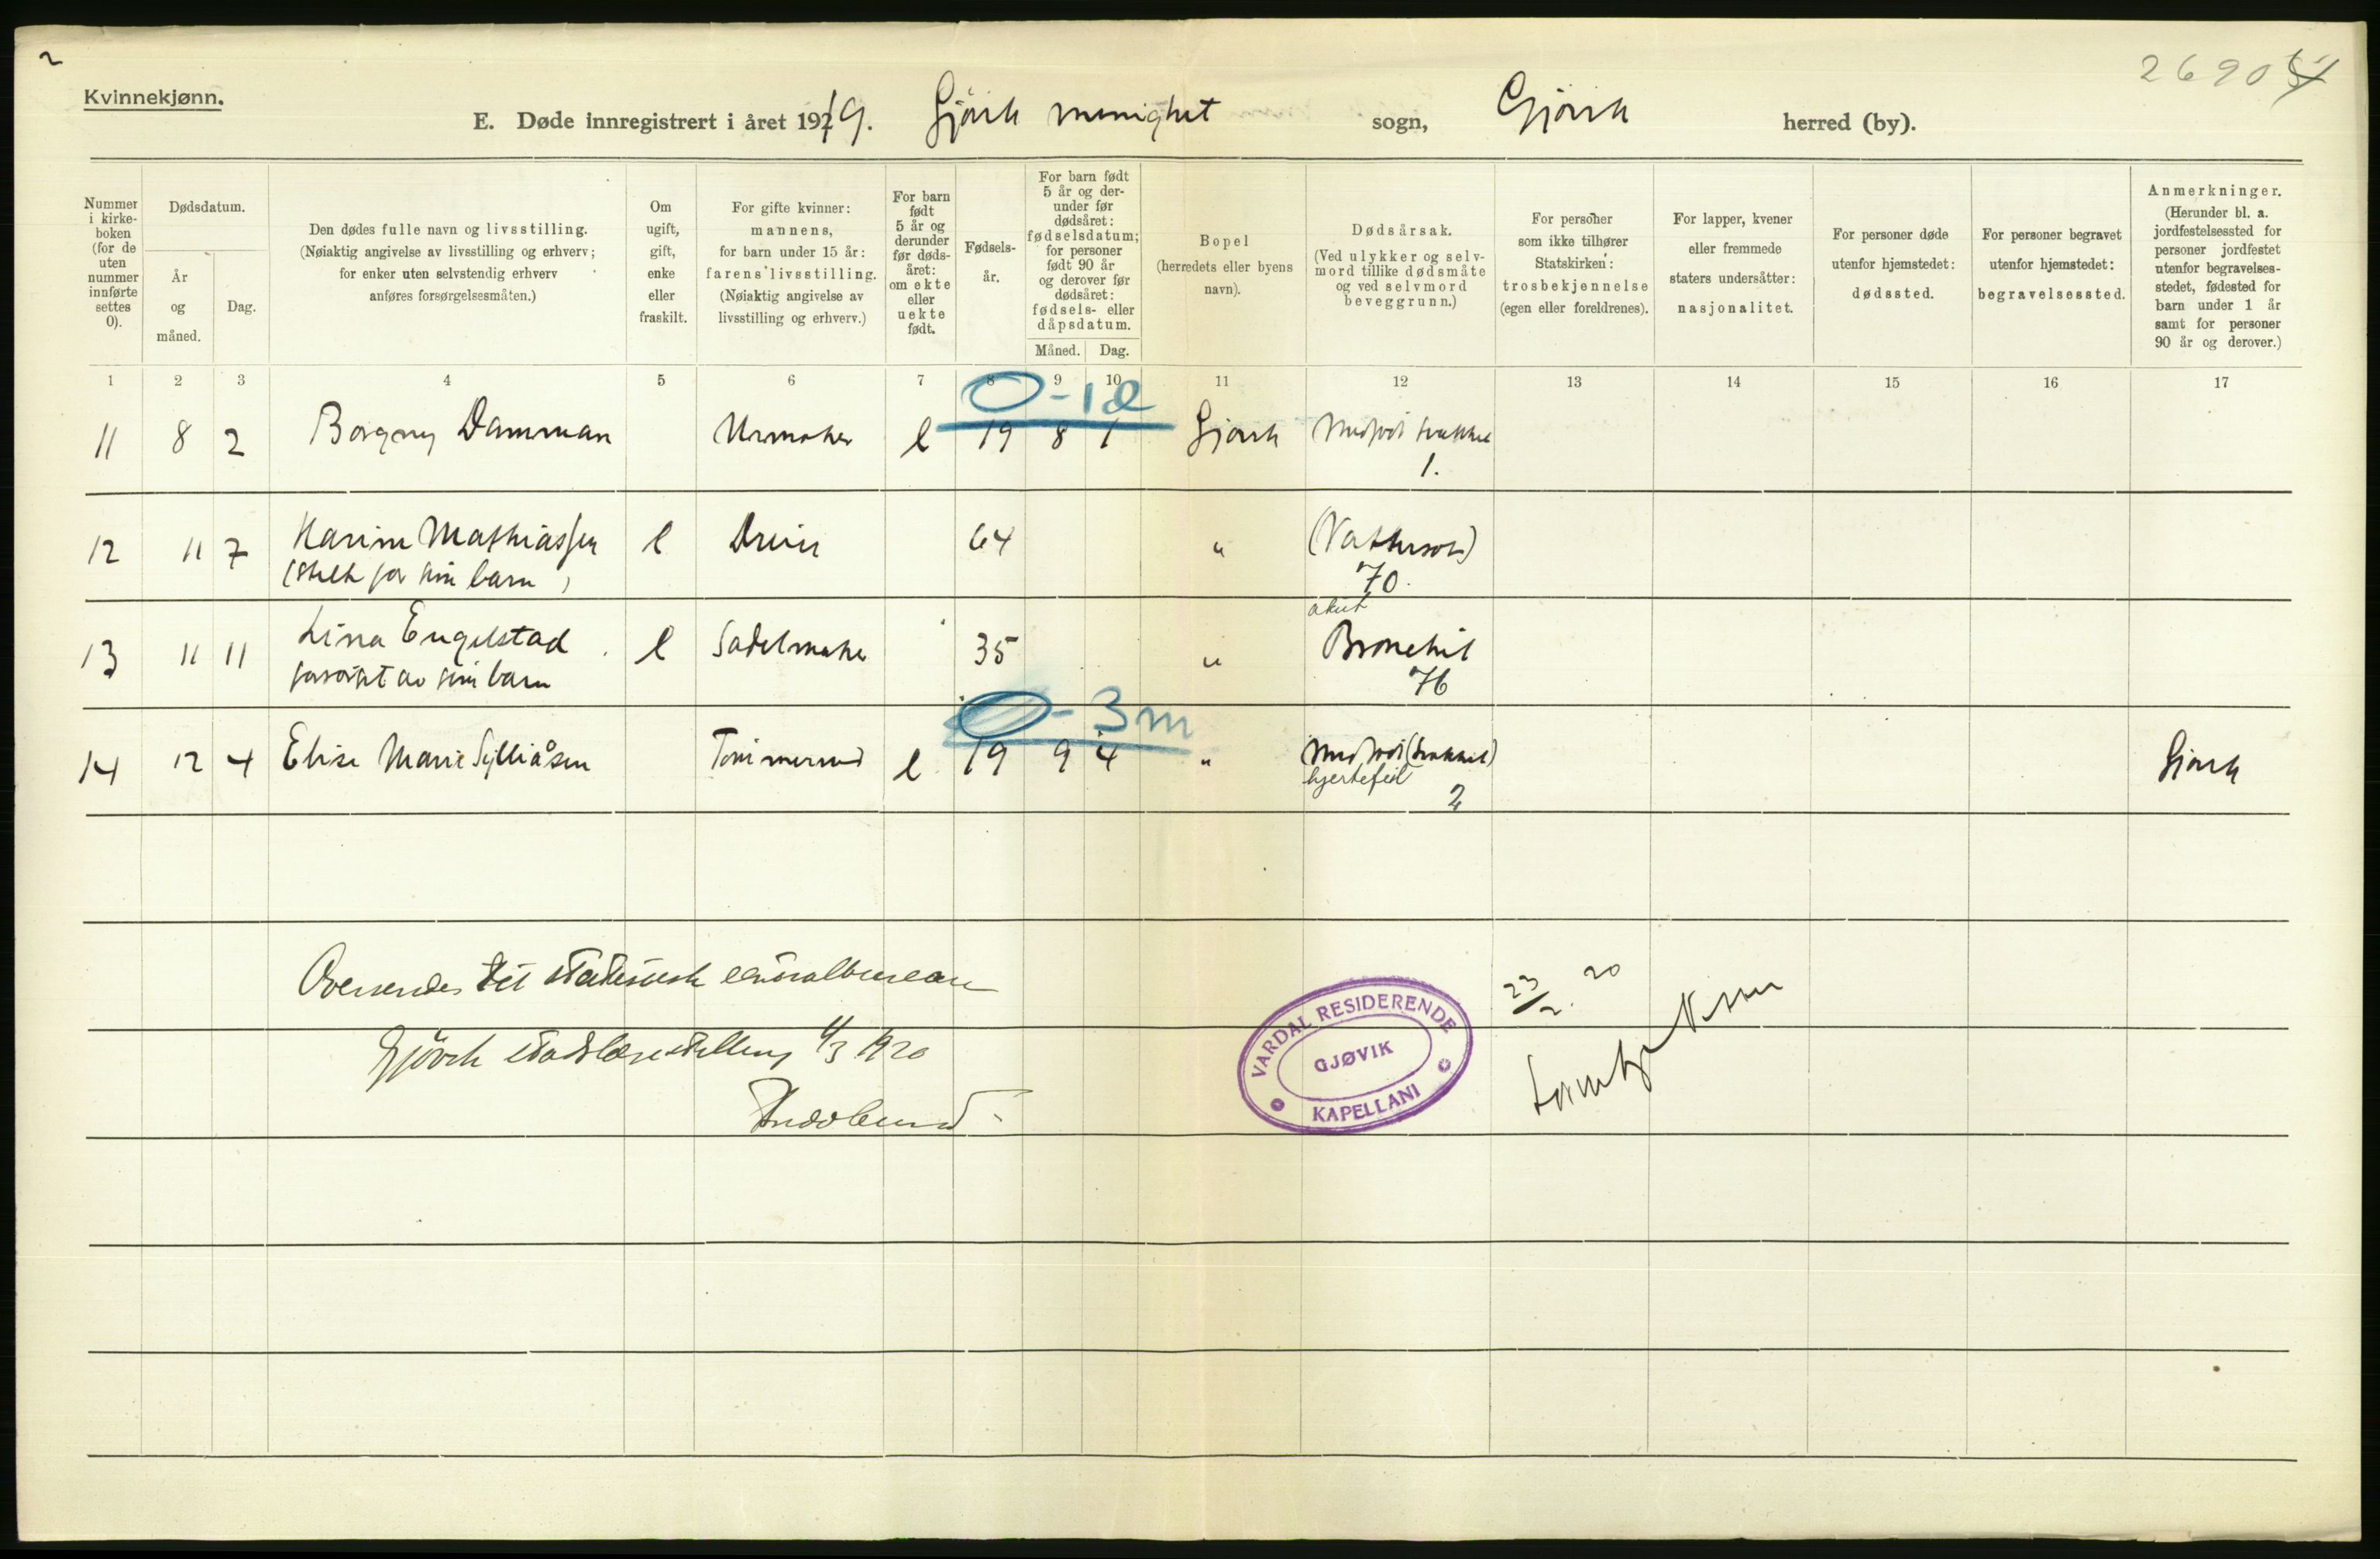 2
Kvinnekjønn.
2690
E. Døde innregistrert i året 1919. Gjøvik menighet sogn, Gjøvik herred (by).
Nummer i kirke- boken (for de uten nummer innførte settes 0).
Dødsdatum.
År og måned.
Dag.
Den dødes fulle navn og livsstilling.
(Nøiaktig angivelse av livsstilling og erhverv;
for enker uten selvstendig erhverv
anføres forsørgelsesmåten.)
Om ugift, gift, enke eller fraskilt.
For gifte kvinner:
mannens,
for barn under 15 år:
farens livsstilling.
(Nøiaktig angivelse av
livsstilling og erhverv.)
For barn født 5 år og derunder før døds- året: om ekte eller uekte født.
Fødsels- år.
For barn født 5 år og der- under før dødsåret: fødselsdatum; for personer født 90 år og derover før dødsåret: fødsels- eller dåpsdatum.
Måned. Dag.
Bopel
(herredets eller byens
navn).
Dødsårsak.
(Ved ulykker og selv-
mord tillike dødsmåte
og ved selvmord
beveggrunn.)
For personer
som ikke tilhører
Statskirken:
trosbekjennelse
(egen eller foreldrenes).
For lapper, kvener
eller fremmede
staters undersåtter:
nasjonalitet.
For personer døde
utenfor hjemstedet:
dødssted.
For personer begravet
utenfor hjemstedet:
begravelsessted.
Anmerkninger.
(Herunder bl. a.
jordfestelsessted for
personer jordfestet
utenfor begravelses-
stedet, fødested for
barn under 1 år
samt for personer
90 år og derover.)
1 2 3 4 5 6 7 8 9 10 11 12 13 14 15 16 17
0 - 1 d
11 8 2 Borgny Damman Urmaker e 19 8 1 Gjøvik Medfødt svakhet
1.
12 11 7 Karine Mathiassen e 64 " (Vattersot)
for sine barn) 70.
akut
13 11 11 Lina Engelstad e Sadelmaker 35 " Bronchit
forsørget av sine barn 76
0 - 3 m
14 12 4 Elise Marie e 19 9 4 " Medfødt (svakhet) Gjøvik
hjertefeil 2
Oversendes det statistiske centralbureau
Gjøvik stadslægestilling 4/3 1920
23/2. 20
VARDAL RESIDERENDE
GJØVIK
KAPELLANI